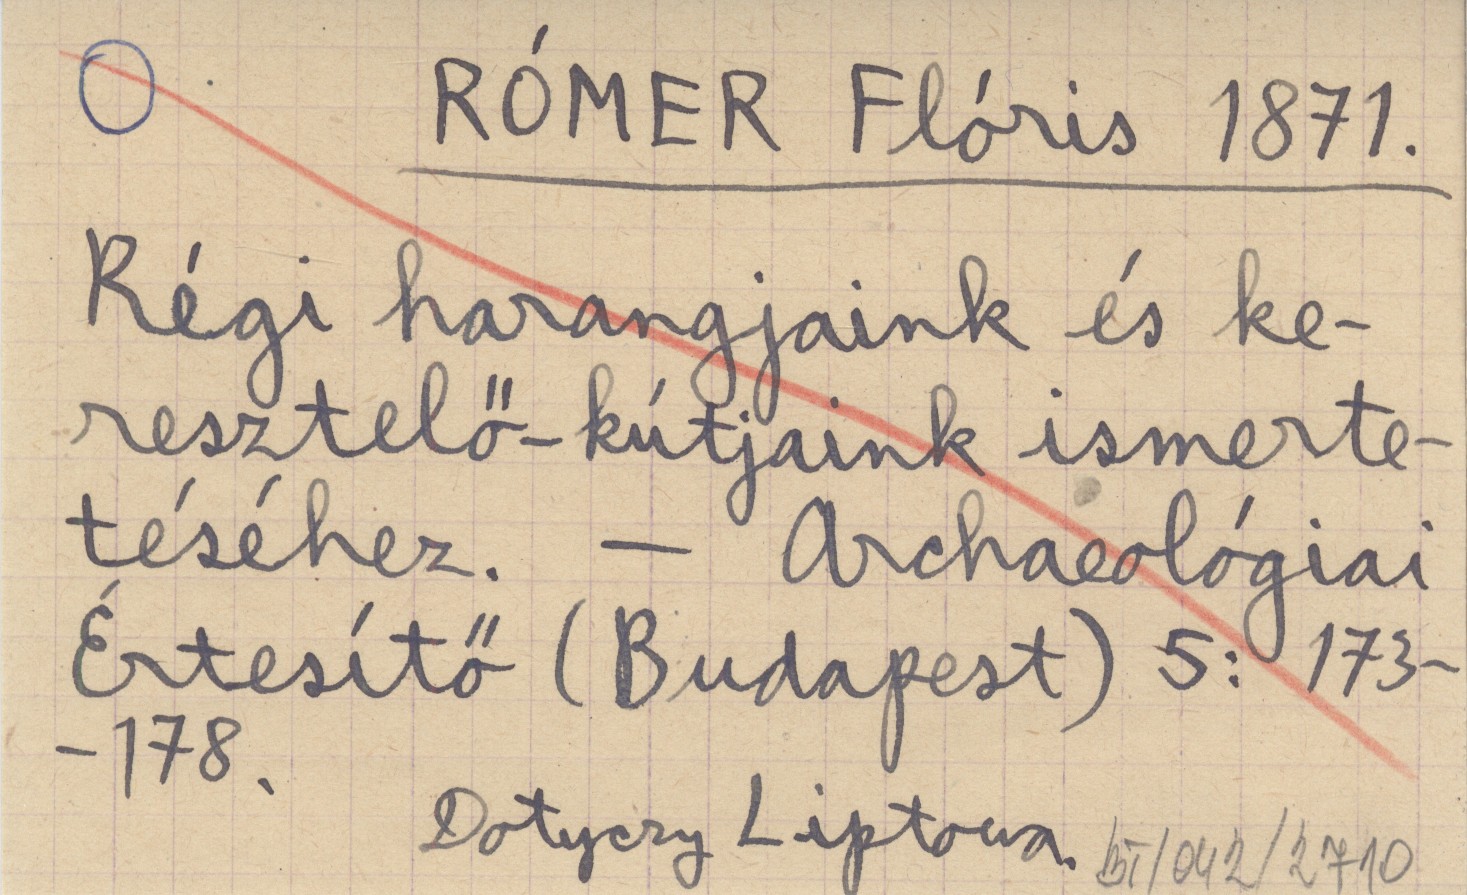 RÓMER Flóris 1871.
Régi harangjaink és ke-
resztelő-kútjaink ismerte-
téséhez. — Archaeológiai
Értesítő (Budapest) 5: 173-
-178.
Dotyczy Liptowa.
BI/042/2710